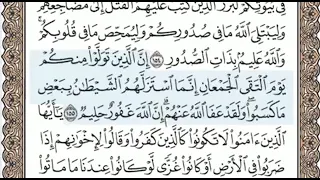 فِي بُيُوتِكُمْ لَبَرَزَ ٱلَّذِينَ كُتِبَ عَلَيْهِمُ ٱلْقَتْلُ إِلَىٰ مَضَاجِعِهِمْ
وَلِيَبْتَلِيَ ٱللَّهُ مَا فِي صُدُورِكُمْ وَلِيُمَحِّصَ مَا فِي قُلُوبِكُمْ
وَٱللَّهُ عَلِيمٌۢ بِذَاتِ ٱلصُّدُورِ ١٥٤ إِنَّ ٱلَّذِينَ تَوَلَّوْا۟ مِنكُمْ
يَوْمَ ٱلْتَقَى ٱلْجَمْعَانِ إِنَّمَا ٱسْتَزَلَّهُمُ ٱلشَّيْطَٰنُ بِبَعْضِ
مَا كَسَبُوا۟ وَلَقَدْ عَفَا ٱللَّهُ عَنْهُمْ إِنَّ ٱللَّهَ غَفُورٌ حَلِيمٌ ١٥٥ يَٰٓأَيُّهَا
ٱلَّذِينَ ءَامَنُوا۟ لَا تَكُونُوا۟ كَٱلَّذِينَ كَفَرُوا۟ وَقَالُوا۟ لِإِخْوَٰنِهِمْ إِذَا
ضَرَبُوا۟ فِي ٱلْأَرْضِ أَوْ كَانُوا۟ غُزًّى لَّوْ كَانُوا۟ عِندَنَا مَا مَاتُوا۟